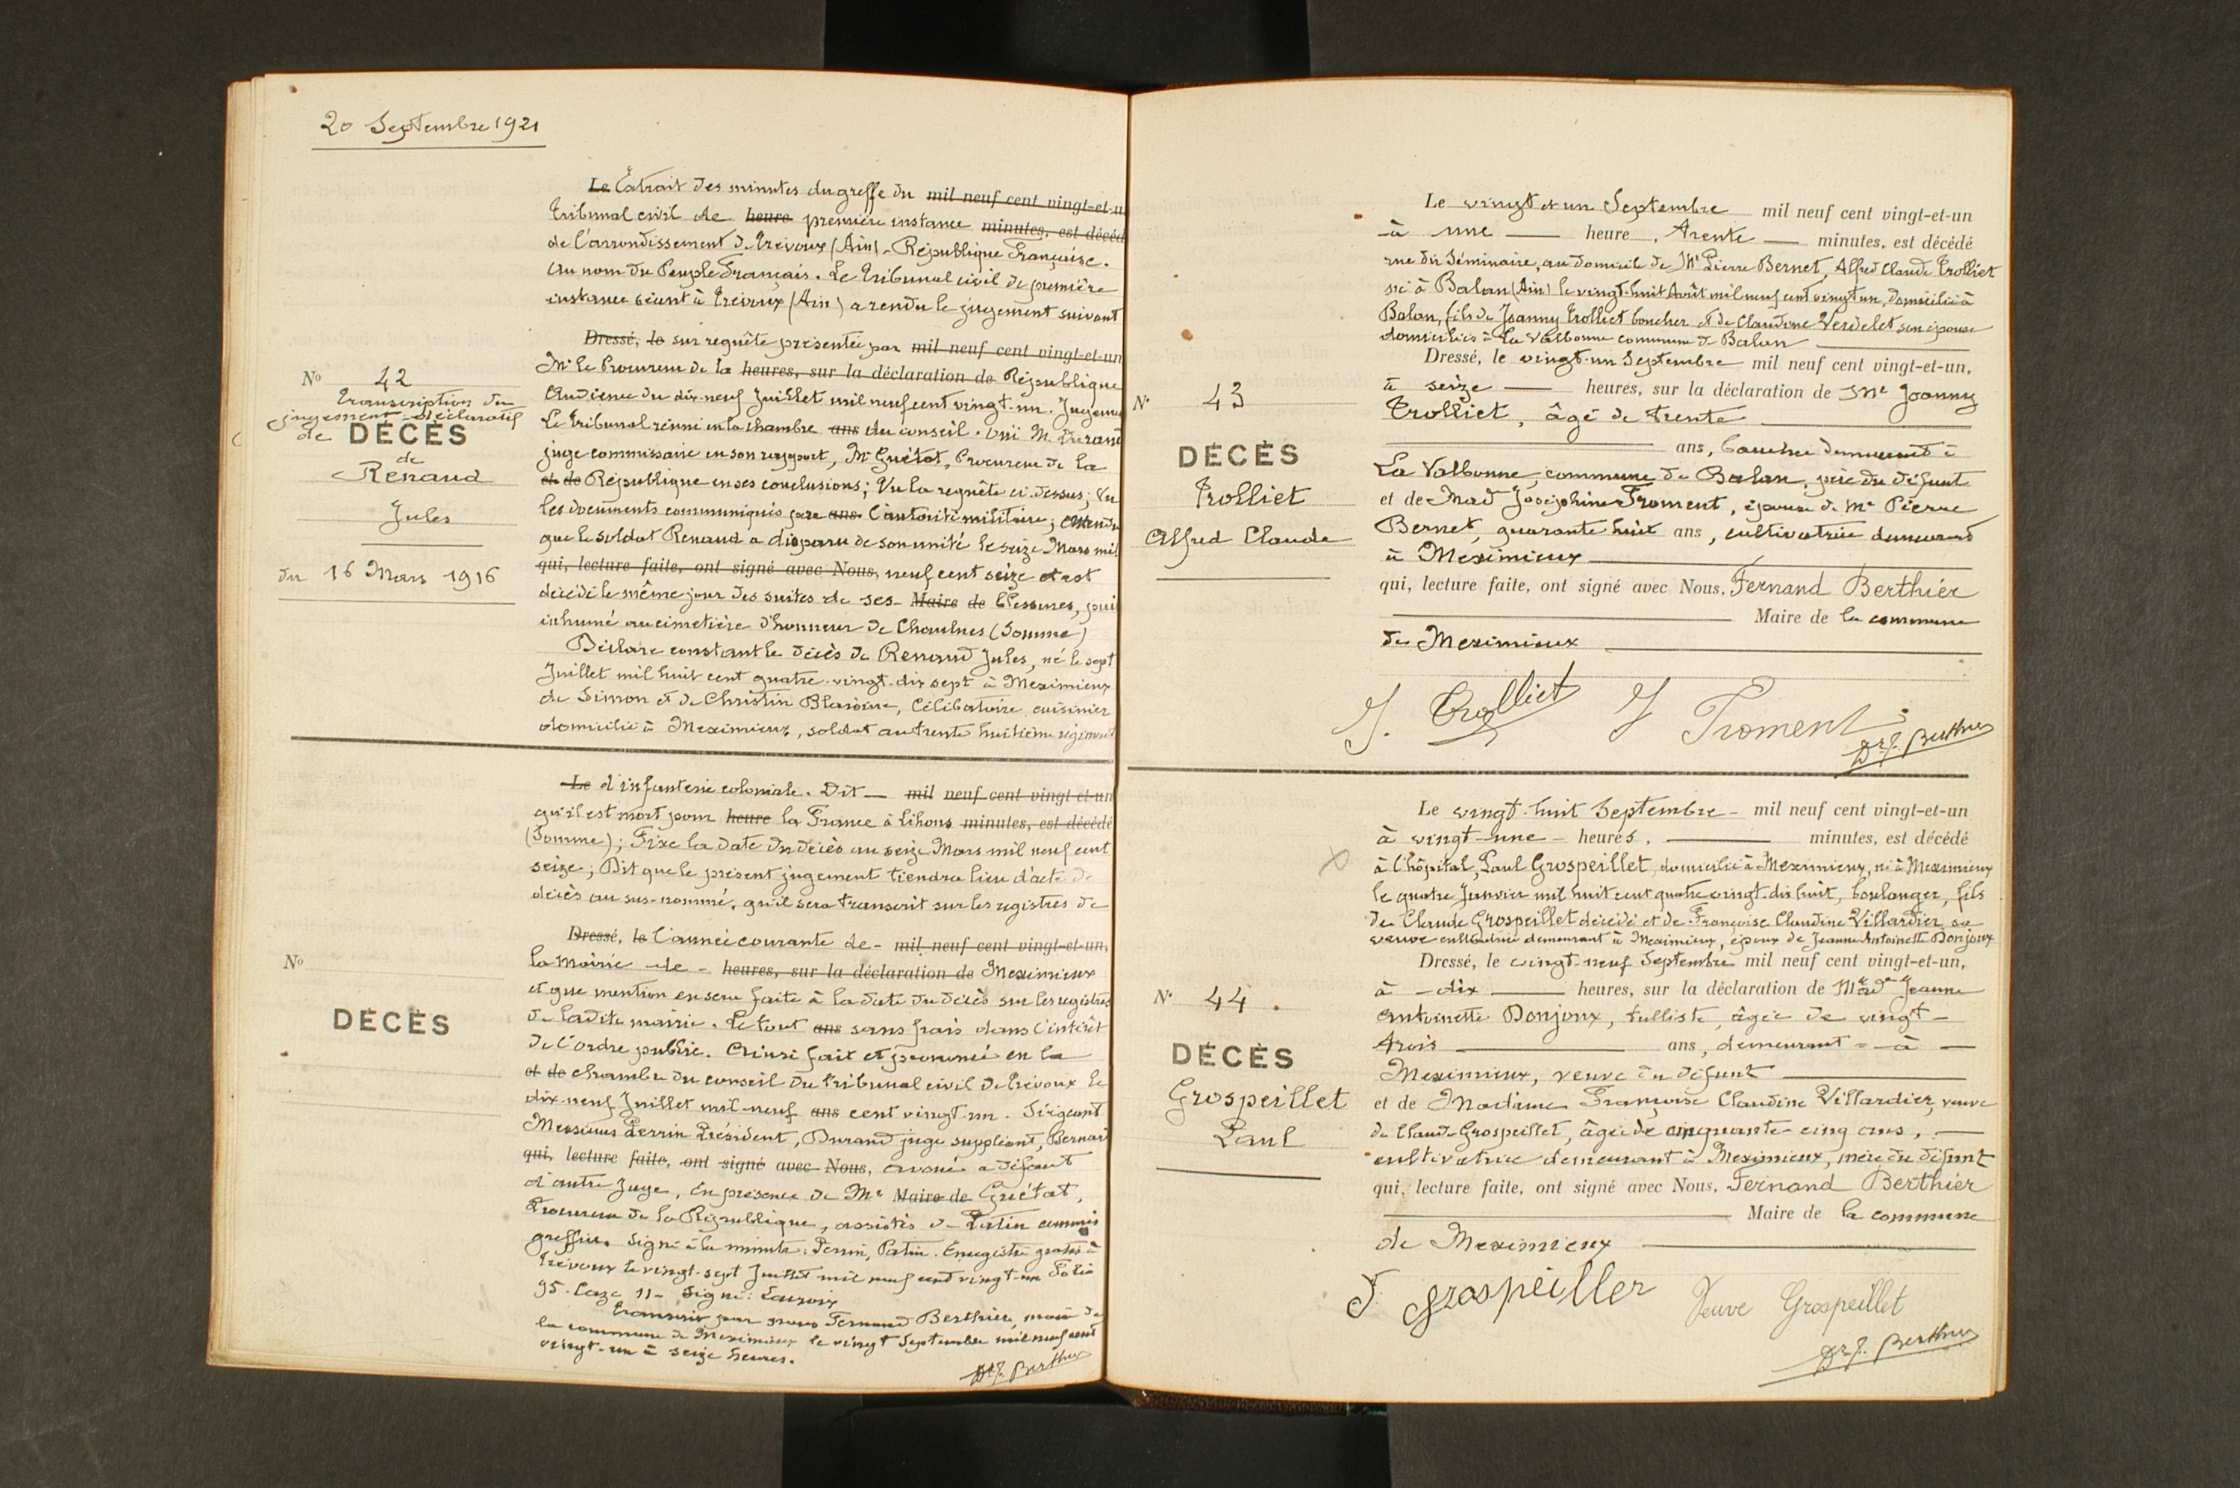 20 Septembre 1921
Le Extrait des minutes du greffe du mil neuf cent vingt-et-u
Tribunal civil de heure première instance minutes, est décéd
de l'arrondissement de Trévoux (Ain) - République Française.
Au nom du Peuple Français. Le Tribunal civil de première
instance séant à Trévoux (Ain) a rendu le jugement suivant
Dressé, le sur requête présentée par mil neuf cent vingt-et-un
Mr le Procureur de la heures, sur la déclaration de République
Audience du dix-neuf Juillet mil neuf cent vingt-un. Jugeme
Le Tribunal réuni en la chambre ans du conseil. Ouï M. Durand
juge commissaire en son rapport, Mr Guétat, Procureur de la
et de République en ses conclusions; Vu la requête ci-dessus; Vu
les documents communiqués par ans l'autorité militaire; Attendu
que le soldat Renaud a disparu de son unité le seize Mars mil
qui, lecture faite, ont signé avec Nous, neuf cent seize et est
décédé le même jour des suites de ses Maire de blessures, puis
inhumé au cimetière d'honneur de Chaulnes (Somme)
Déclare constant le décès de Renaud Jules, né le sept
Juillet mil huit cent quatre-vingt-dix sept à Meximieux
de Simon et de Christin Blandine, Célibataire cuisinier
domicilié à Meximieux, soldat au trente huitième régiment
No 42
Transcription du
jugement déclaratif
de DÉCÈS
de
Renaud
Jules
du 16 Mars 1916
Le d'infanterie coloniale. Dit mil neuf cent vingt-et-un
qu'il est mort pour heure la France à Lihons minutes, est décédé
(Somme); Fixe la date du décès au seize Mars mil neuf cent
seize; Dit que le présent jugement tiendra lieu d'acte de
décès au sus-nommé, qu'il sera transcrit sur les registres de
Dressé, le l'année courante de - mil neuf cent vingt-et-un,
la Mairie de - heures, sur la déclaration de Meximieux
et que mention en sera faite à la date du décès sur les registres
de ladite mairie. Le tout ans sans frais dans l'intérêt
de l'ordre public. Ainsi fait et prononcé en la
et de chambre du conseil du tribunal civil de Trévoux le
dix-neuf Juillet mil-neuf ans cent vingt-un. Siégeant
Messieurs Perrin Président, Durand juge suppléant, Bernard
qui, lecture faite, ont signé avec Nous, avoué à défaut
d'autre Juge, En présence de Mr Maire de Guétat,
Procureur de la République, assistés de Patin commis
greffier. Signé à la minute: Perrin, Patin. Enregistré gratis à
Trévoux le vingt-sept Juillet mil neuf cent vingt-un Folio
95. Case 11 - Signé:
Transcrit par nous Fernand Berthier, maire de
la commune de Meximieux le vingt Septembre mil neuf cent
vingt-un à seize heures.
Dr F. Berthier
No
DÉCÈS
Le vingt et un Septembre mil neuf cent vingt-et-un
à une heure, trente minutes, est décédé
rue du Séminaire, au domicile de Mr Pierre Bernet, Alfred Claude Trolliet
né à Balan (Ain) le vingt-huit Août mil neuf cent vingt un, domicilié à
Balan, fils de Joanny Trolliet boucher et de Claudine Verdelet son épouse
domiciliés à La Valbonne commune de Balan
Dressé, le vingt-un Septembre mil neuf cent vingt-et-un,
à seize heures, sur la déclaration de Mr Joanny
Trolliet, âgé de trente
ans, boucher demeurant à
La Valbonne, commune de Balan, père du défunt
et de Mad Joséphine Froment, épouse de Mr Pierre
Bernet, quarante huit ans, cultivatrice demeurant
à Meximieux
qui, lecture faite, ont signé avec Nous, Fernand Berthier
Maire de la commune
de Meximieux
J. Trolliet J Froment
Dr F. Berthier
No 43
DÉCÈS
Trolliet
Alfred Claude
Le vingt-huit Septembre - mil neuf cent vingt-et-un
à vingt-une - heures, minutes, est décédé
à l'hôpital, Paul Grospeillet, domicilié à Meximieux, né à Meximieux
le quatre Janvier mil huit cent quatre vingt-dix huit, boulanger, fils
de Claude Grospeillet décédé et de Françoise Claudine Villardier, sa
veuve cultivatrice demeurant à Meximieux, époux de Jeanne Antoinette Donjoux
Dressé, le vingt-neuf Septembre mil neuf cent vingt-et-un,
à - dix heures, sur la déclaration de Made Jeanne
Antoinette Donjoux, tulliste, âgée de vingt-
trois ans, demeurant - à -
Meximieux, veuve du défunt
et de Madame Françoise Claudine Villardier, veuve
de Claude Grospeillet, âgée de cinquante-cinq ans,
cultivatrice demeurant à Meximieux, mère du défunt
qui, lecture faite, ont signé avec Nous, Fernand Berthier
Maire de la commune
de Meximieux
J. Grospeiller Veuve Grospeillet
Dr F. Berthier
No 44.
DÉCÈS
Grospeillet
Paul